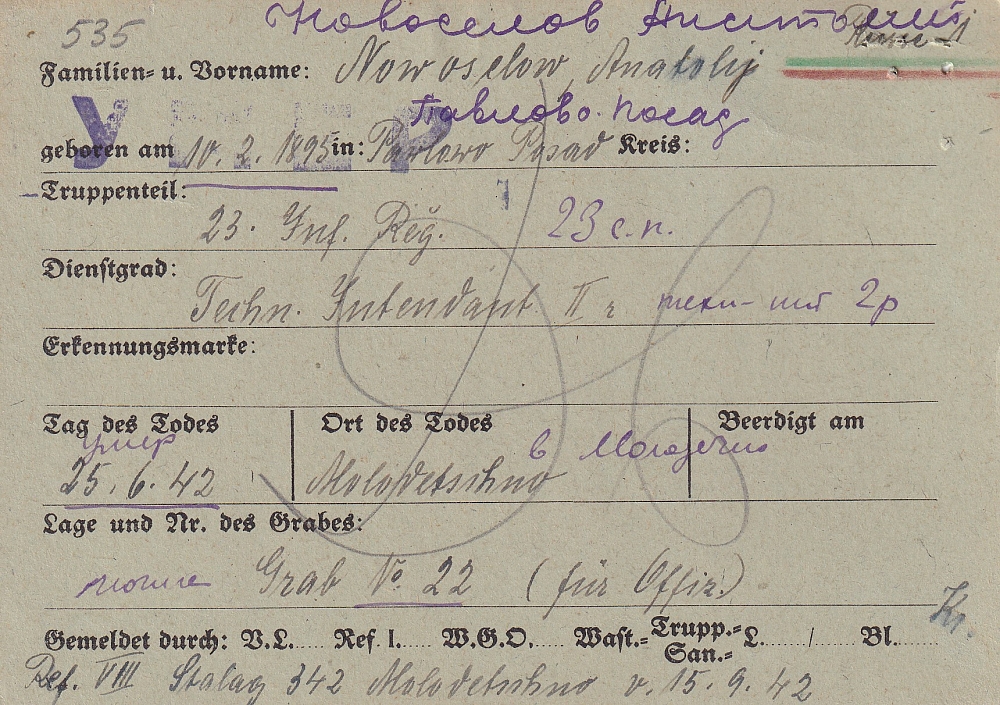 535 Новоселов Анатолий
Familien= u. Vorname: Nowoselow Anatolij
Павлово-Посад
geboren am 10. 2. 1895 in: Pawlowo Posad Kreis:
Truppenteil:
23. Inf. Reg. 23 с.п.
Dienstgrad:
Techn. Intendant II r техн-инт 2р
Erkennungsmarke:
Tag des Todes Ort des Todes Beerdigt am
умер в Молодечно
25.6.42 Molodetschno
Lage und Nr. des Grabes:
Grab No. 22 (für Offiz.)
Kr.
Gemeldet durch: V.L. Ref I. W.G.O. Wast.= Trupp.= San.= L. / Bl.
Ref. VIII Stalag 342 Molodetschno v. 15.9.42